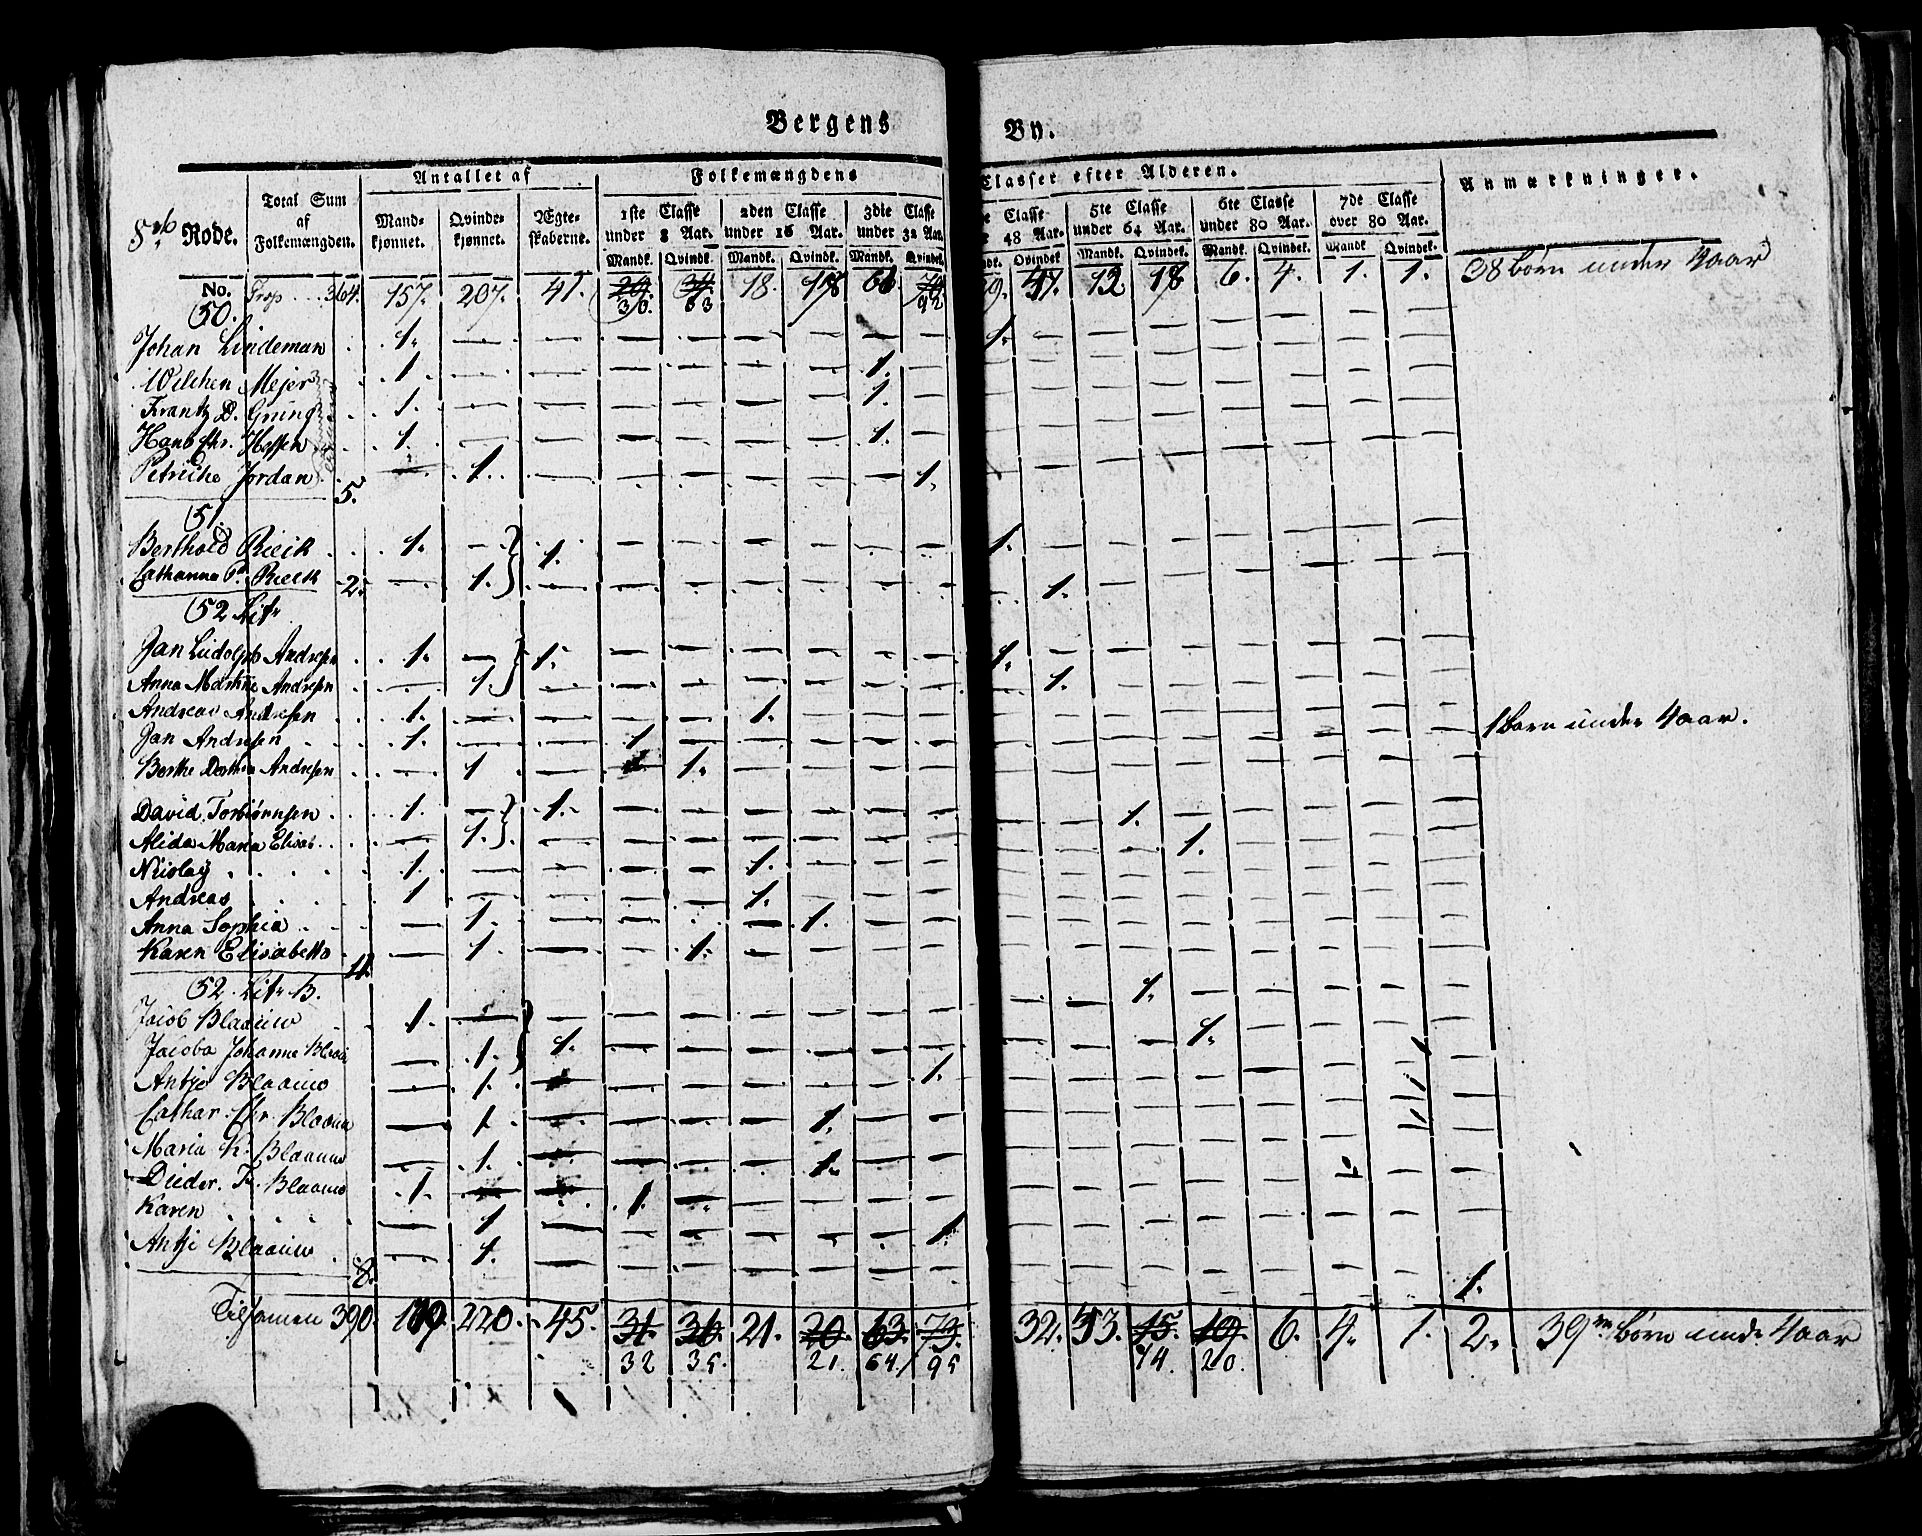 Bergens By.
8de Rode.
Total Sum af Folkemængden.
Antallet af
Mandkjønnet. Qvindekjønnet. Ægteskaberne.
Folkemængdens Classer efter Alderen.
1ste Classe under 8 Aar. 2den Classe under 16 Aar. 3die Classe under 32 Aar. Classe 48 Aar. 5te Classe under 64 Aar. 6te Classe under 80 Aar. 7de Classe over 80 Aar.
Mandk. Qvindk. Mandk. Qvindk. Mandk. Qvindek. Qvindek Mandk. Qvindek. Mandk. Qvindek. Mandk Qvindek.
Anmærkninger.
No. Trsp 364. 157. 207. 41. 18. 12 18 6. 4. 1. 1. 38 børn under 4 aar
30. 33 92
50.
Johan Lindeman 1. 1.
Wilchen Mejer 1. 1.
Frantz D. Gring 1. 1.
Hans Chr. Hessen 1. 1.
Petriche Jordan 5. 1. 1.
51.
Berthold Rieck 1. 1. 1.
Cathanna Rieck 2. 1. 1.
52 Litr
Jan Ludolph Andresen 1. 1. 1.
Anna Martine Andresen 1. 1.
Andreas Andresen 1. 1.
Jan Andresen 1. 1 1 Barn under 4 aar.
Berthe Dorthea Andresen 1 1.
David Torbiørnsen 1. 1. 1.
Alida Maria Elisab. 1. 1.
Nicolay 1. 1.
Andreas 1 1.
Anna Sophia 1. 1.
Karen Elisabetha 11. 1. 1.
52. Litr B.
Jacob Blaauw 1. 1.
Jacoba Johanne Blaau 1. 1. 1.
Antje Blaauw 1. 1.
Cathar. Chr. Blaauw 1. 1.
Maria K. Blaauw 1. 1.
Dieder. Fr. Blaauw 1. 1.
Karen 1 1
Antje Blaauw 8. 1. 1.
Tilsamen 390. 220. 45. 31. 36. 21. 20. 63. 73. 32. 53. 15. 19. 6. 4. 1. 2. 39 børn unde 4 aar
32 35. 21. 64. 95 14. 20.